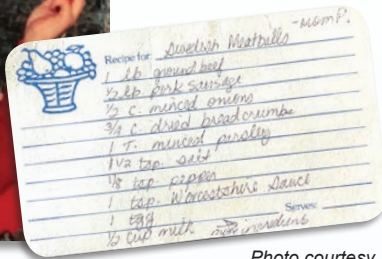 -Mom P.
Recipe for: Swedish Meatballs
1 lb ground beef
1/2 lb pork sausage
1/2 c. minced onions
3/4 c. dried breadcrumbs
1 T. minced parsley
1 1/2 tsp. salt
1/8 tsp. pepper
1 tsp. Worcestshire Sauce
1 egg
1/2 cup milk mix ingredients
Serves:
Photo courtesy